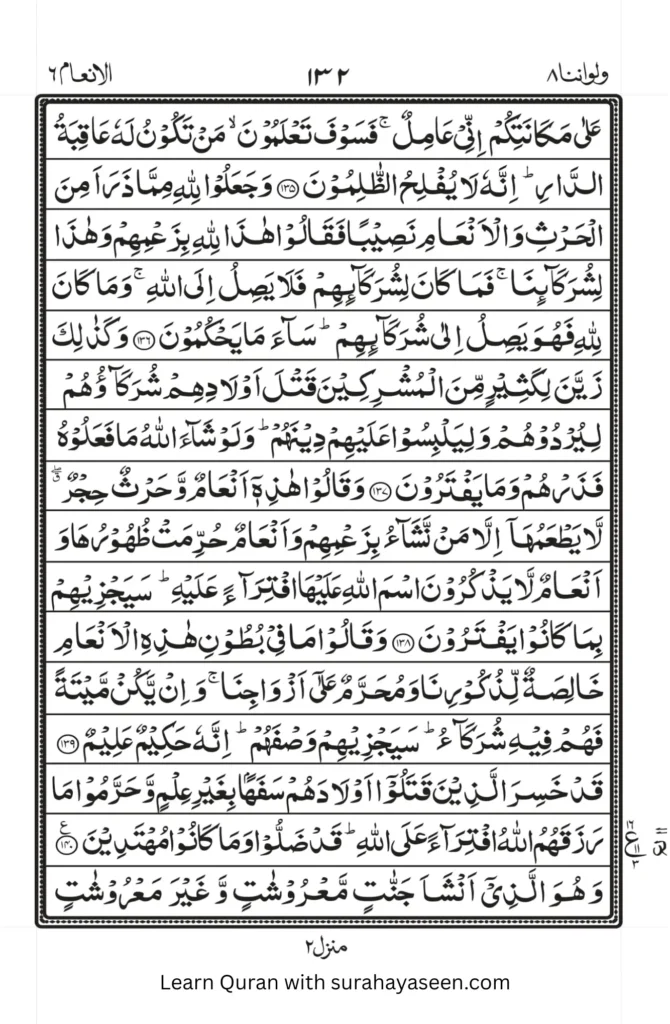 ولواننا ٨ ١٣٢ الانعام ٦
عَلٰى مَكَانَتِكُمْ اِنِّىْ عَامِلٌ ۚ فَسَوْفَ تَعْلَمُوْنَ ۙ مَنْ تَكُوْنُ لَهٗ عَاقِبَةُ
الدَّارِ ؕ اِنَّهٗ لَا يُفْلِحُ الظّٰلِمُوْنَ ﴿١٣٥﴾ وَجَعَلُوْا لِلّٰهِ مِمَّا ذَرَاَ مِنَ
الْحَرْثِ وَالْاَنْعَامِ نَصِيْبًا فَقَالُوْا هٰذَا لِلّٰهِ بِزَعْمِهِمْ وَهٰذَا
لِشُرَكَآئِنَا ۚ فَمَا كَانَ لِشُرَكَآئِهِمْ فَلَا يَصِلُ اِلَى اللّٰهِ ۚ وَمَا كَانَ
لِلّٰهِ فَهُوَ يَصِلُ اِلٰى شُرَكَآئِهِمْ ؕ سَآءَ مَا يَحْكُمُوْنَ ﴿١٣٦﴾ وَكَذٰلِكَ
زَيَّنَ لِكَثِيْرٍ مِّنَ الْمُشْرِكِيْنَ قَتْلَ اَوْلَادِهِمْ شُرَكَآؤُهُمْ
لِيُرْدُوْهُمْ وَلِيَلْبِسُوْا عَلَيْهِمْ دِيْنَهُمْ ؕ وَلَوْ شَآءَ اللّٰهُ مَا فَعَلُوْهُ
فَذَرْهُمْ وَمَا يَفْتَرُوْنَ ﴿١٣٧﴾ وَقَالُوْا هٰذِهٖۤ اَنْعَامٌ وَّحَرْثٌ حِجْرٌ ۖ ق
لَّا يَطْعَمُهَاۤ اِلَّا مَنْ نَّشَآءُ بِزَعْمِهِمْ وَاَنْعَامٌ حُرِّمَتْ ظُهُوْرُهَا وَ
اَنْعَامٌ لَّا يَذْكُرُوْنَ اسْمَ اللّٰهِ عَلَيْهَا افْتِرَآءً عَلَيْهِ ؕ سَيَجْزِيْهِمْ
بِمَا كَانُوْا يَفْتَرُوْنَ ﴿١٣٨﴾ وَقَالُوْا مَا فِىْ بُطُوْنِ هٰذِهِ الْاَنْعَامِ
خَالِصَةٌ لِّذُكُوْرِنَا وَمُحَرَّمٌ عَلٰٓى اَزْوَاجِنَا ۚ وَاِنْ يَّكُنْ مَّيْتَةً
فَهُمْ فِيْهِ شُرَكَآءُ ؕ سَيَجْزِيْهِمْ وَصْفَهُمْ ؕ اِنَّهٗ حَكِيْمٌ عَلِيْمٌ ﴿١٣٩﴾
قَدْ خَسِرَ الَّذِيْنَ قَتَلُوْۤا اَوْلَادَهُمْ سَفَهًۢا بِغَيْرِ عِلْمٍ وَّحَرَّمُوْا مَا
رَزَقَهُمُ اللّٰهُ افْتِرَآءً عَلَى اللّٰهِ ؕ قَدْ ضَلُّوْا وَمَا كَانُوْا مُهْتَدِيْنَ ﴿١٤٠﴾ ع
١٦
ع ١١
٣
وَهُوَ الَّذِىْۤ اَنْشَاَ جَنّٰتٍ مَّعْرُوْشٰتٍ وَّغَيْرَ مَعْرُوْشٰتٍ
منزل ٢
Learn Quran with surahayaseen.com